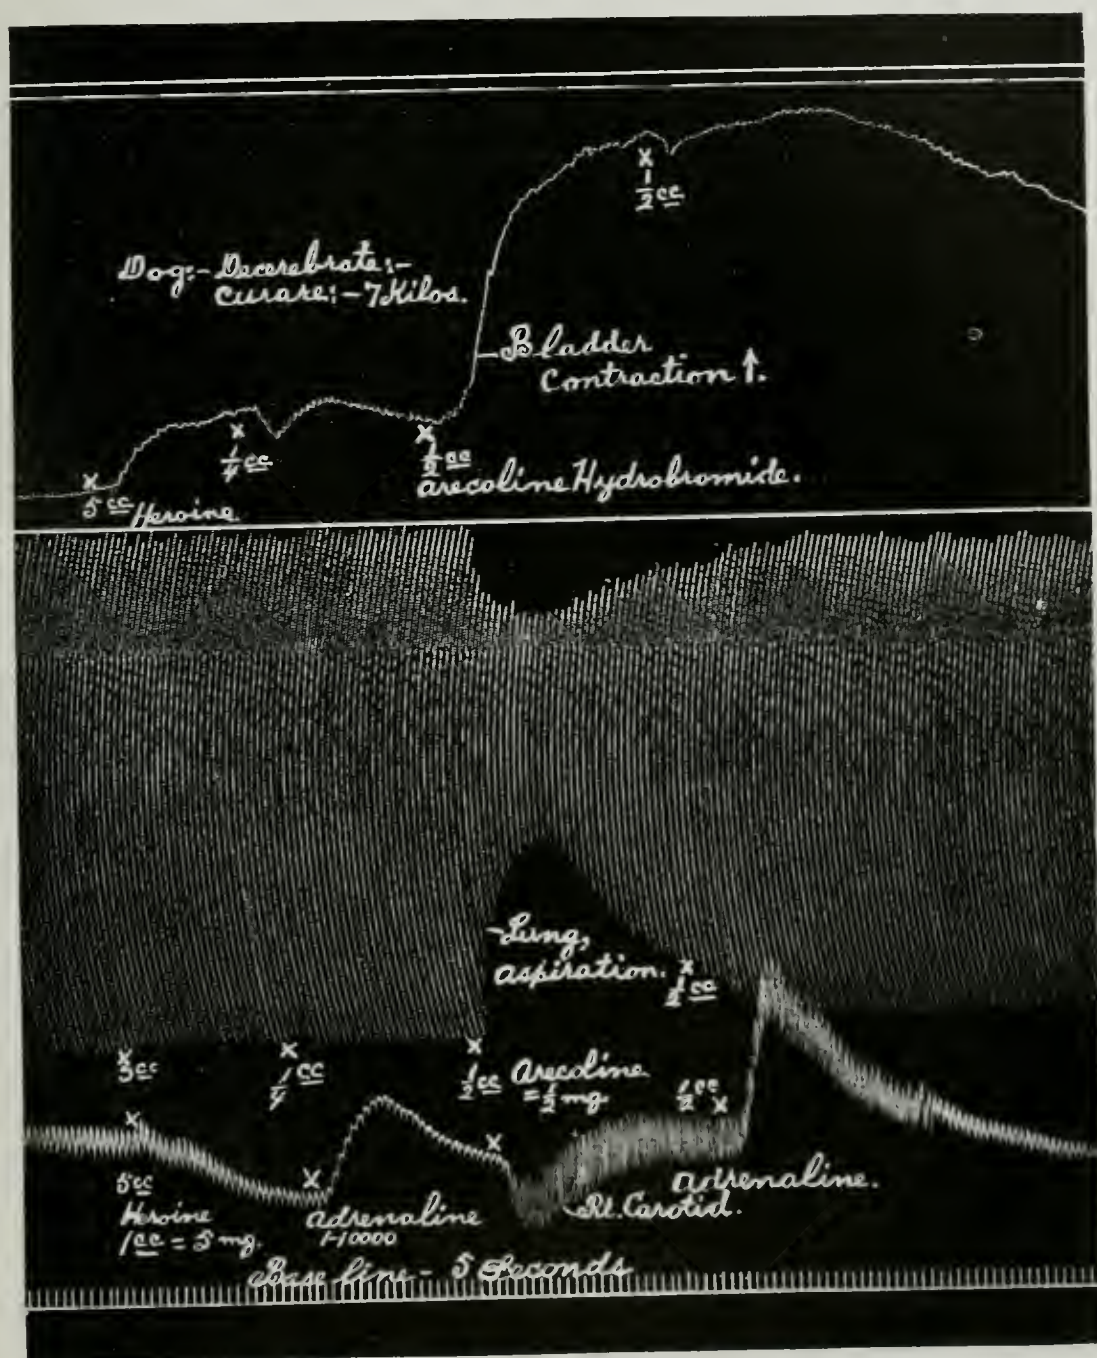 x
1/2 cc
Dog:- Decerebrate:-
Curare:- 7 Kilos.
Bladder
Contraction ↑.
x
1/4 cc
x
1/2 cc
Arecoline Hydrobromide.
x
5 cc Heroine.
Lung,
aspiration.
x
1/2 cc
x
3 cc
x
1/4 cc
x
1/2 cc
Arecoline
= 1/2 mg.
1/2 cc
x
x
5 cc
Heroine
1 cc = 5 mg.
x
Adrenaline
1-10000
x
Rt. Carotid.
Adrenaline.
Base line - 5 Seconds